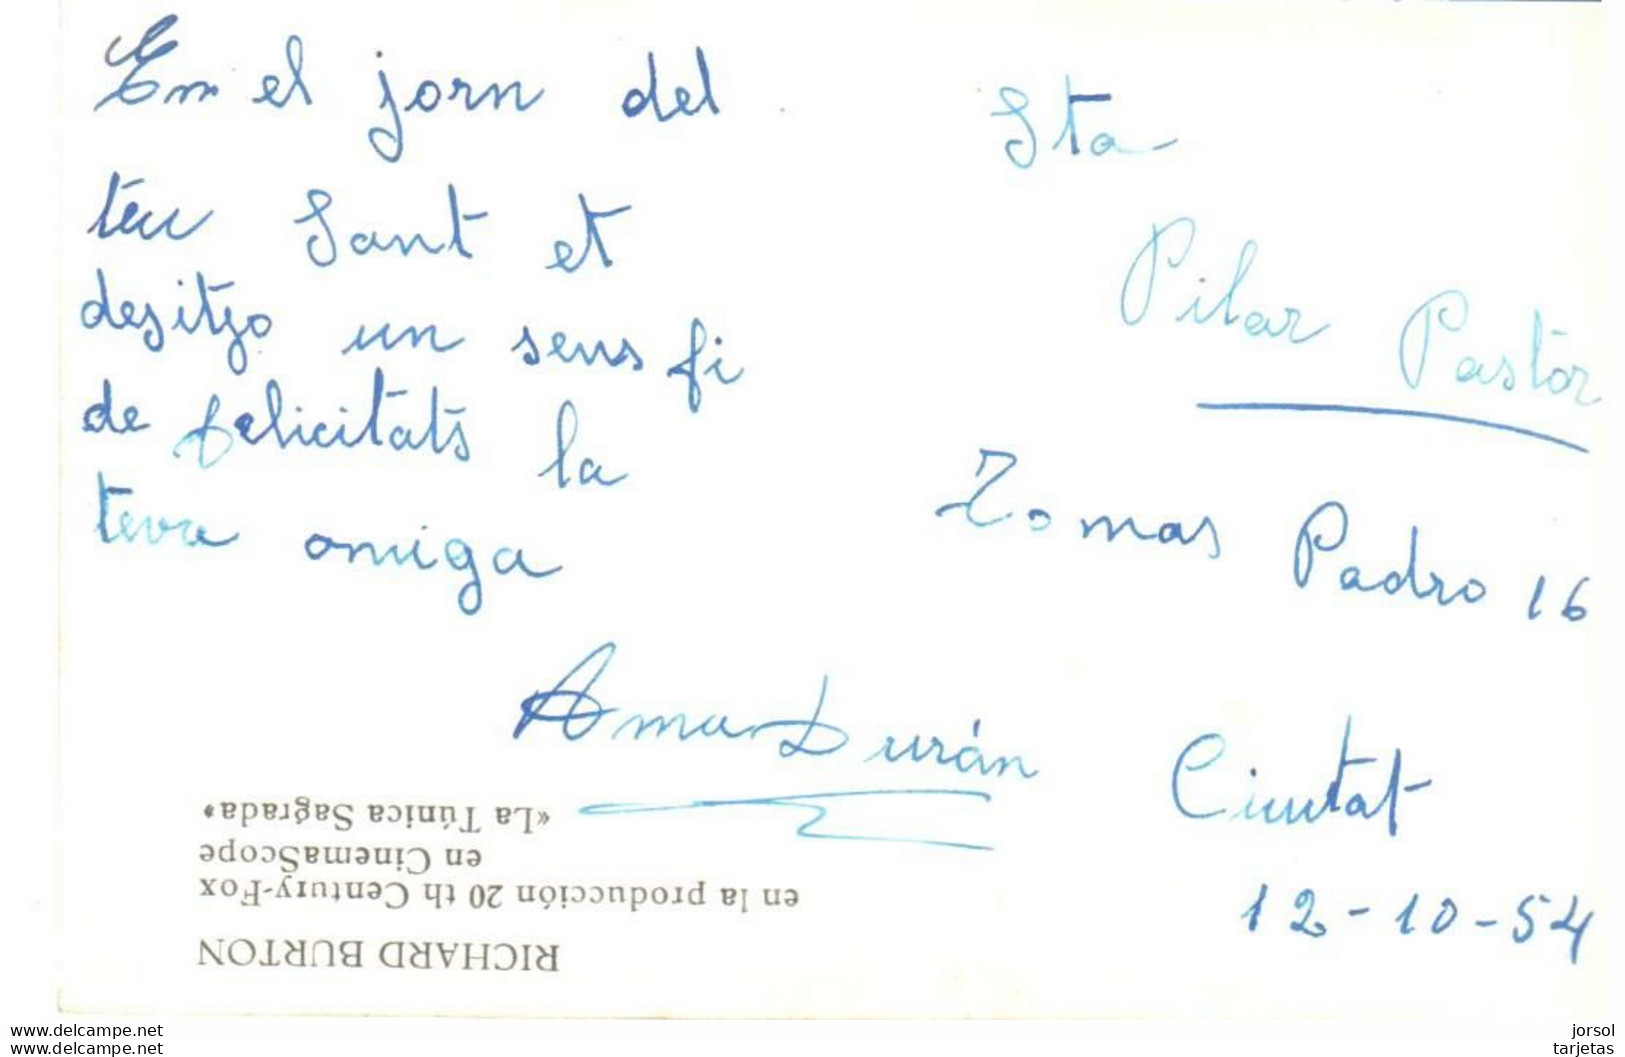 En el jorn del
teu Sant et
desitjo un sens fi
de felicitats la
teva amiga
Anna Durán
Sta
Pilar Pastor
Tomas Padro 16
Ciutat
12-10-54
RICHARD BURTON
en la producción 20 th Century-Fox
en CinemaScope
«La Túnica Sagrada»
www.delcampe.net
www.delcampe.net
jorsol
tarjetas